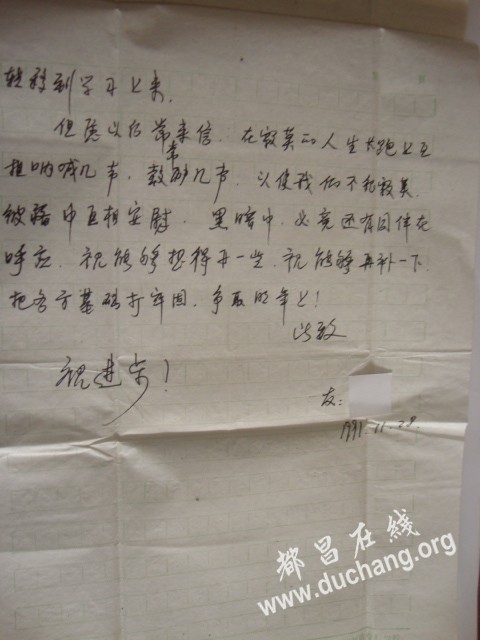 转移到学习上来。
但愿以后常来信，在寂寞的人生长跑上互
相呐喊几声，常敲几声，以使我们不和寂寞
中互相安慰，黑暗中，必竟还有同伴在
呼应，祝能够想得开一些，祝能够再补一下
把各方基础打牢固，争取明年上！
此致
祝进步！
友：
1991.11.28.
都昌在线
www.duchang.org